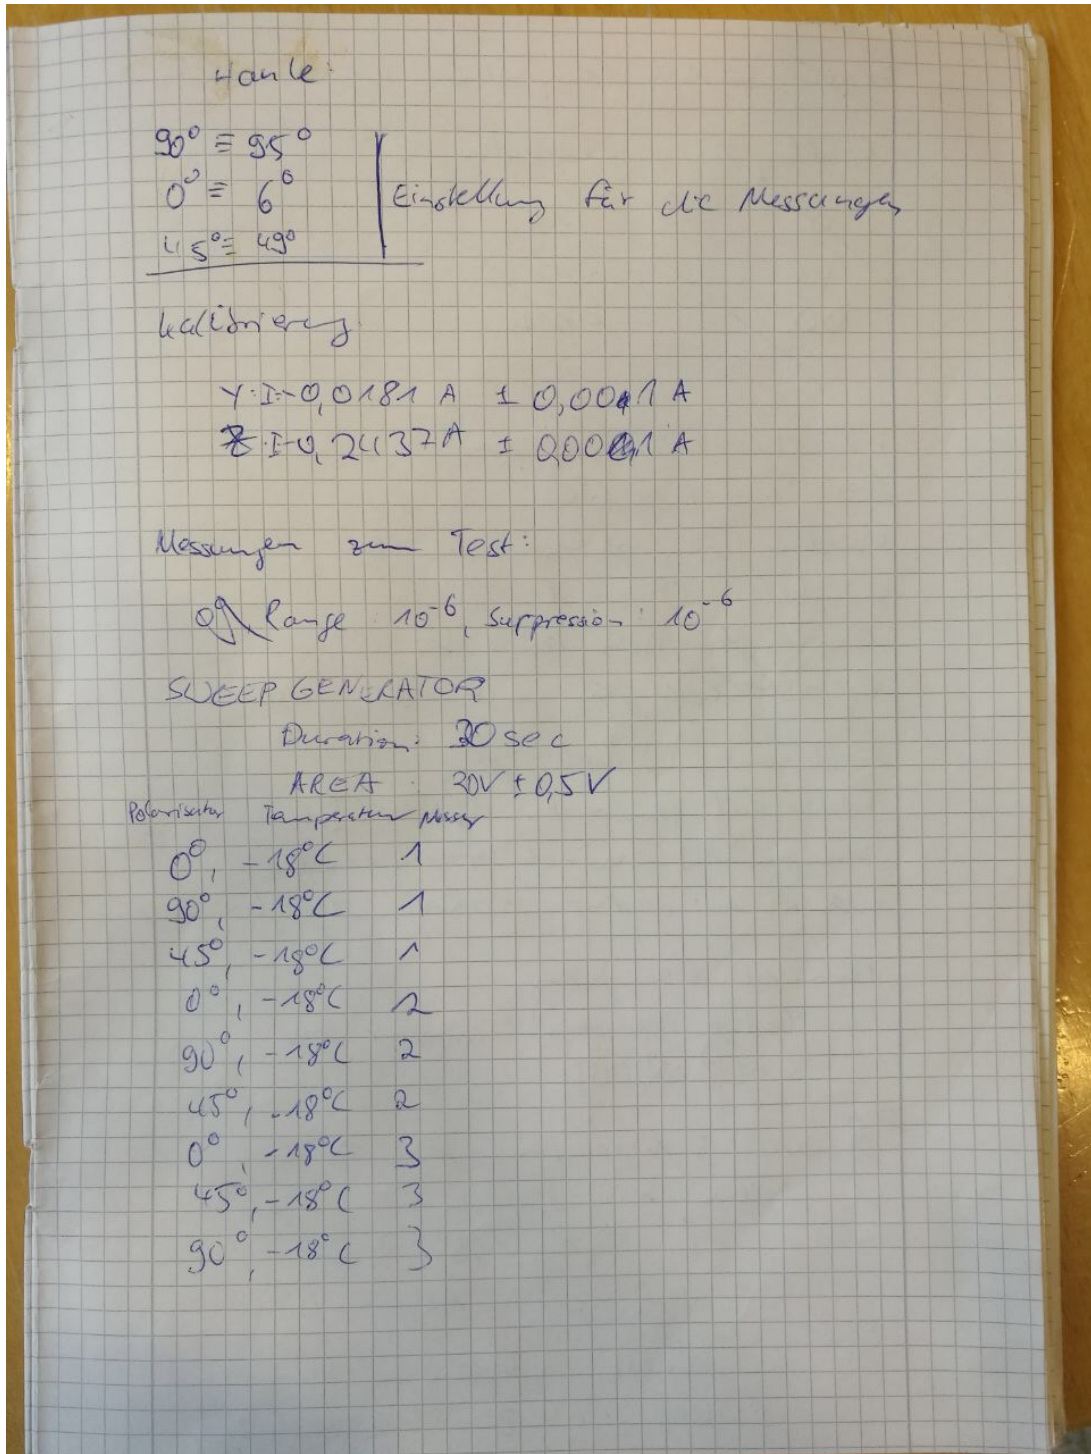 Hanle:
90° ≡ 95°
0° ≡ 6°
45° ≡ 49°
Einstellung für die Messungen
Kalibrierung
Y: I=0,0181 A ± 0,0001 A
Z: I=0,2437 A ± 0,0001 A
Messungen zum Test:
Range: 10⁻⁶, Suppression: 10⁻⁶
SWEEP GENERATOR
Duration: 30 sec
AREA : 20V ± 0,5 V
Polarisator Temperatur Messung
0°, -18°C 1
90°, -18°C 1
45°, -18°C 1
0°, -18°C 2
90°, -18°C 2
45°, -18°C 2
0°, -18°C 3
45°, -18°C 3
90°, -18°C 3